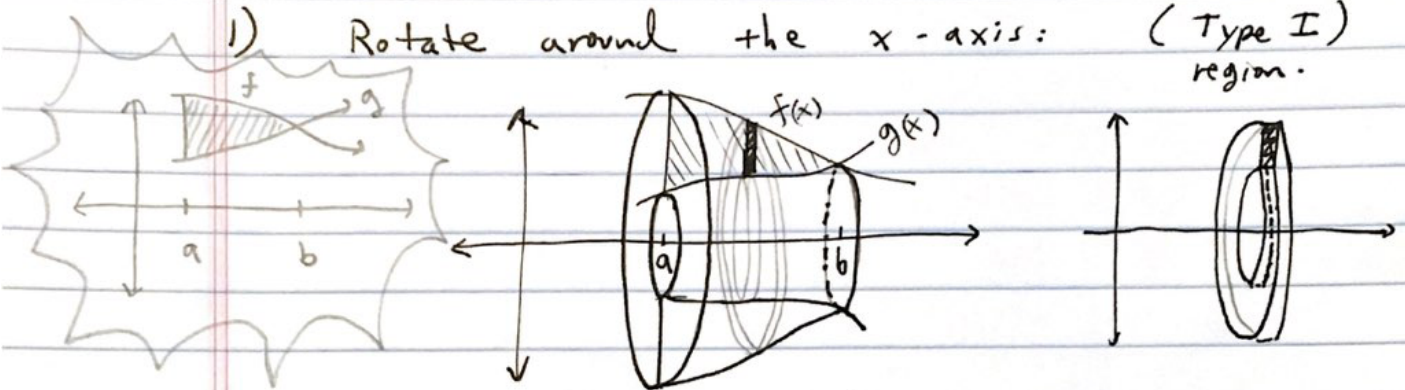 1) Rotate around the x-axis: (Type I)
region.
f
g
f(x)
g(x)
a
b
a
b